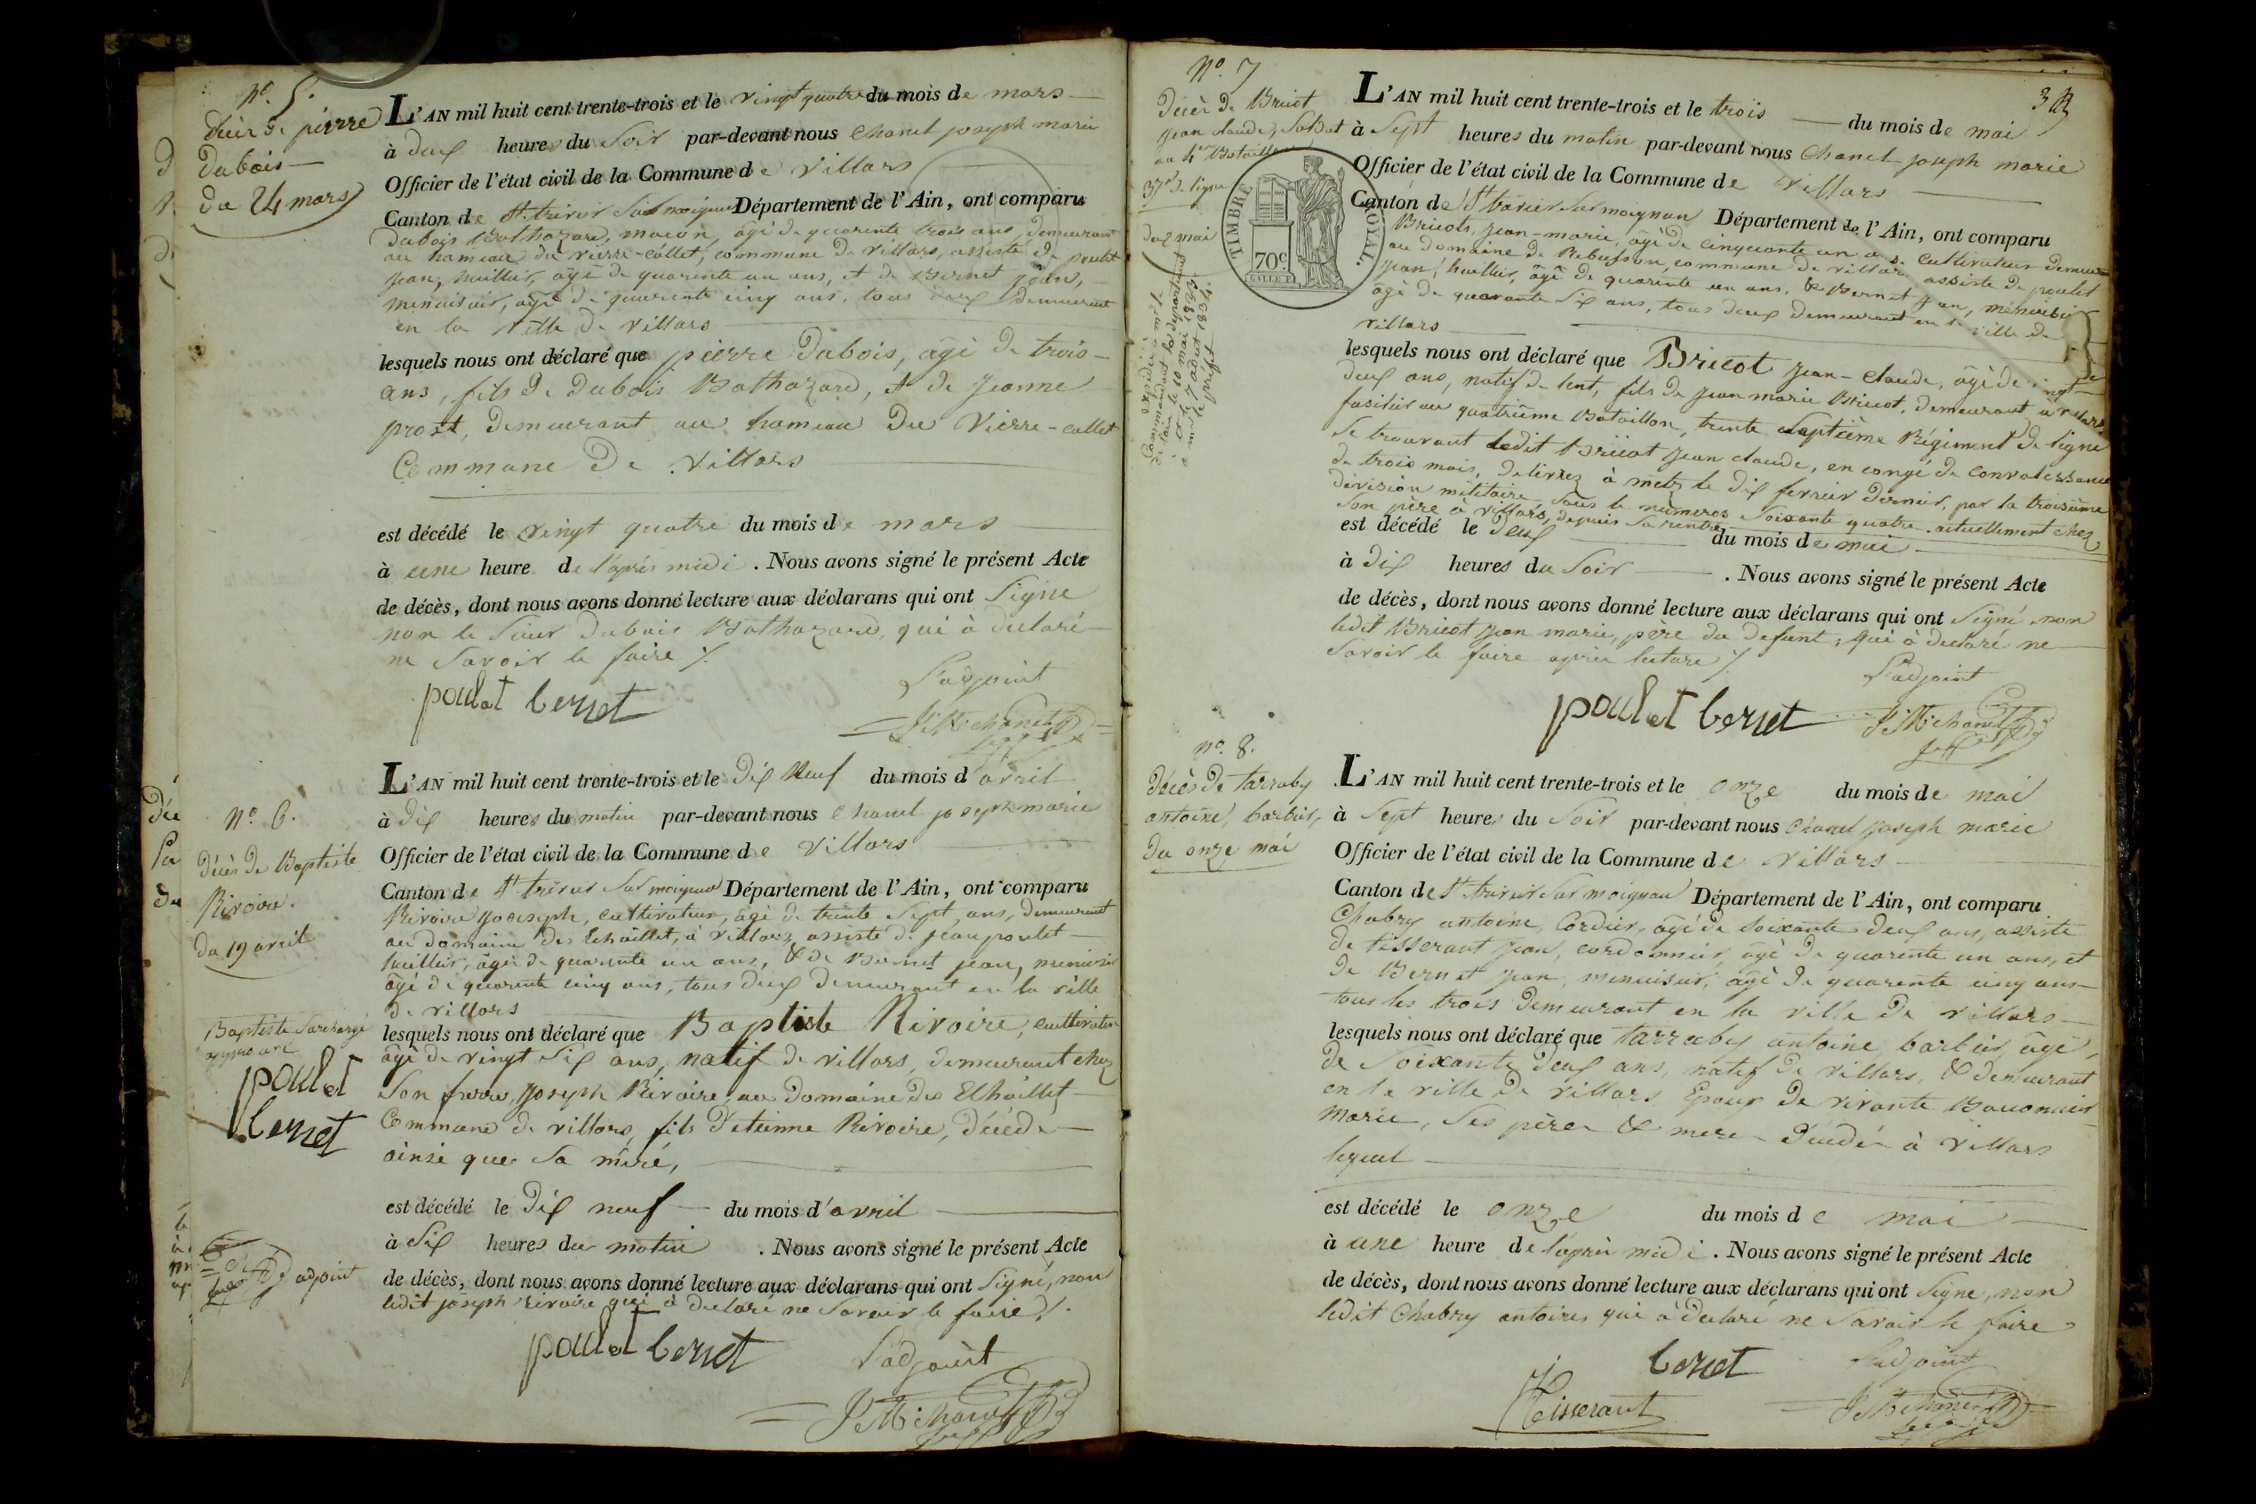 N.° 5.
décès de pierre
Dubois
du 24 mars
L'AN mil huit cent trente-trois et le vingt quatre du mois de mars
à deux heures du Soir par-devant nous Chanel joseph marie
Officier de l'état civil de la Commune de Villars
Canton de St. trivier Sur moignans Département de l'Ain, ont comparu
Dubois Balthazard, maçon, âgé de quarente trois ans, demeurant
au hameau du Vierre-collet, commune de Villars, assisté de poulet
jean, huillier, âgé de quarente un ans, et de Bernet jean,
menuisier, âgé de quarente cinq ans, tous deux demeurant
en la ville de villars
lesquels nous ont déclaré que pierre Dubois, âgé de trois
ans, fils de Dubois Balthazard, et de Jeanne
prost, demeurant au hameau du Vierre-collet
Commune de Villars
est décédé le vingt quatre du mois de mars
à une heure de l'après midi. Nous avons signé le présent Acte
de décès, dont nous avons donné lecture aux déclarans qui ont Signé
non le Sieur Dubois Balthazard, qui à déclaré
ne Savoir le faire ./.
poulet bernet
L'adjoint
J M Chanel
N.° 6.
décès de Baptiste
Rivoire.
du 19 avril
L'AN mil huit cent trente-trois et le dix Neuf du mois d'avril
à dix heures du matin par-devant nous Chanel joseph marie
Officier de l'état civil de la Commune de Villars
Canton de St trivier Sur moignans Département de l'Ain, ont comparu
Rivoire Joseph, cultivateur, âgé de trente Sept ans, demeurent
au domaine des Echaillet, à villars, assisté de jean poulet
huillier, âgé de quarente un ans, & de Bernet jean, menuisier
âgé de quarente cinq ans, tous deux demeurant en la ville
de villars
lesquels nous ont déclaré que Baptiste Rivoire, cultivateur
âgé de vingt Six ans, natif de villars, demeurent chez
Son frere, Joseph Rivoire, au domaine des Echaillet
Commune de villars, fils d'etienne Rivoire, décédé
ainsi que Sa mére,
est décédé le dix neuf du mois d'avril
à Six heures du matin. Nous avons signé le présent Acte
de décès, dont nous avons donné lecture aux déclarans qui ont Signé, non
ledit joseph rivoire qui à déclaré ne Savoir le faire ./.
Baptiste Surchargé
approuvé
poulet
bernet
adjoint
poulet bernet
L'adjoint
J M Chanel
N.° 7
Décès de Bricot
jean claude, Soldat
au 4e Bataillon
37e de ligne
du 2 mai
expédié à mr. le
Commandant le département
de l'ain le 10 mai 1833.
TIMBRE ROYAL.
70c
3
L'AN mil huit cent trente-trois et le trois du mois de mai
à Sept heures du matin par-devant nous Chanel joseph marie
Officier de l'état civil de la Commune de Villars
Canton de St trivier Sur moignans Département de l'Ain, ont comparu
Bricot, jean-marie, âgé de cinquante un ans cultivateur demeurant
au domaine de Rebusson, commune de villars assisté de poulet
jean, huillier, âgé de quarente un ans, & Bernet jean, menuisier
âgé de quarante Six ans, tous deux demeurant en la ville de
villars
lesquels nous ont déclaré que Bricot jean-claude, âgé de vingt
deux ans, natif de lent, fils de jean marie Bricot, demeurant à villars,
fusilier au quatrième Bataillon, trente Septième Régiment de ligne
Se trouvant ledit Bricot jean claude, en congé de convalessance
de trois mois, delivrez à metz le dix ferrier dernier, par la troisième
division militaire, Sous le numeros Soixante quatre. actuellement chez
Son père à villars, depuis Sa rentré
est décédé le deux du mois de mai
à dix heures du Soir. Nous avons signé le présent Acte
de décès, dont nous avons donné lecture aux déclarans qui ont Signé non
ledit Bricot jean marie, père du defunt, qui à déclaré ne
Savoir le faire après lecture ./.
L'adjoint
poulet bernet
J M Chanel
N.° 8.
décès de tarraby
antoine, barbier,
du onze mai
L'AN mil huit cent trente-trois et le onze du mois de mai
à Sept heures du Soir par-devant nous Chanel joseph marie
Officier de l'état civil de la Commune de Villars
Canton de St. trivier Sur moignans Département de l'Ain, ont comparu
Chabry antoine, Cordier, âgé de Soixante deux ans, assisté
de tisserant jean, cordonnier, âgé de quarente un ans, et
de Bernet jean, menuisier, âgé de quarente cinq ans
tous les trois demeurant en la ville de villars
lesquels nous ont déclaré que tarraby antoine barbier âgé,
de Soixante deux ans, natif de villars, & demeurant
en la ville de villars, Epoux de vivante
marie, Ses père & mere décédés à villars
lequel
est décédé le onze du mois de mai
à une heure de l'après midi. Nous avons signé le présent Acte
de décès, dont nous avons donné lecture aux déclarans qui ont Signé, non
ledit Chabry antoine qui à déclaré ne Savoir le faire
bernet L'adjoint
Tisserant J M Chanel